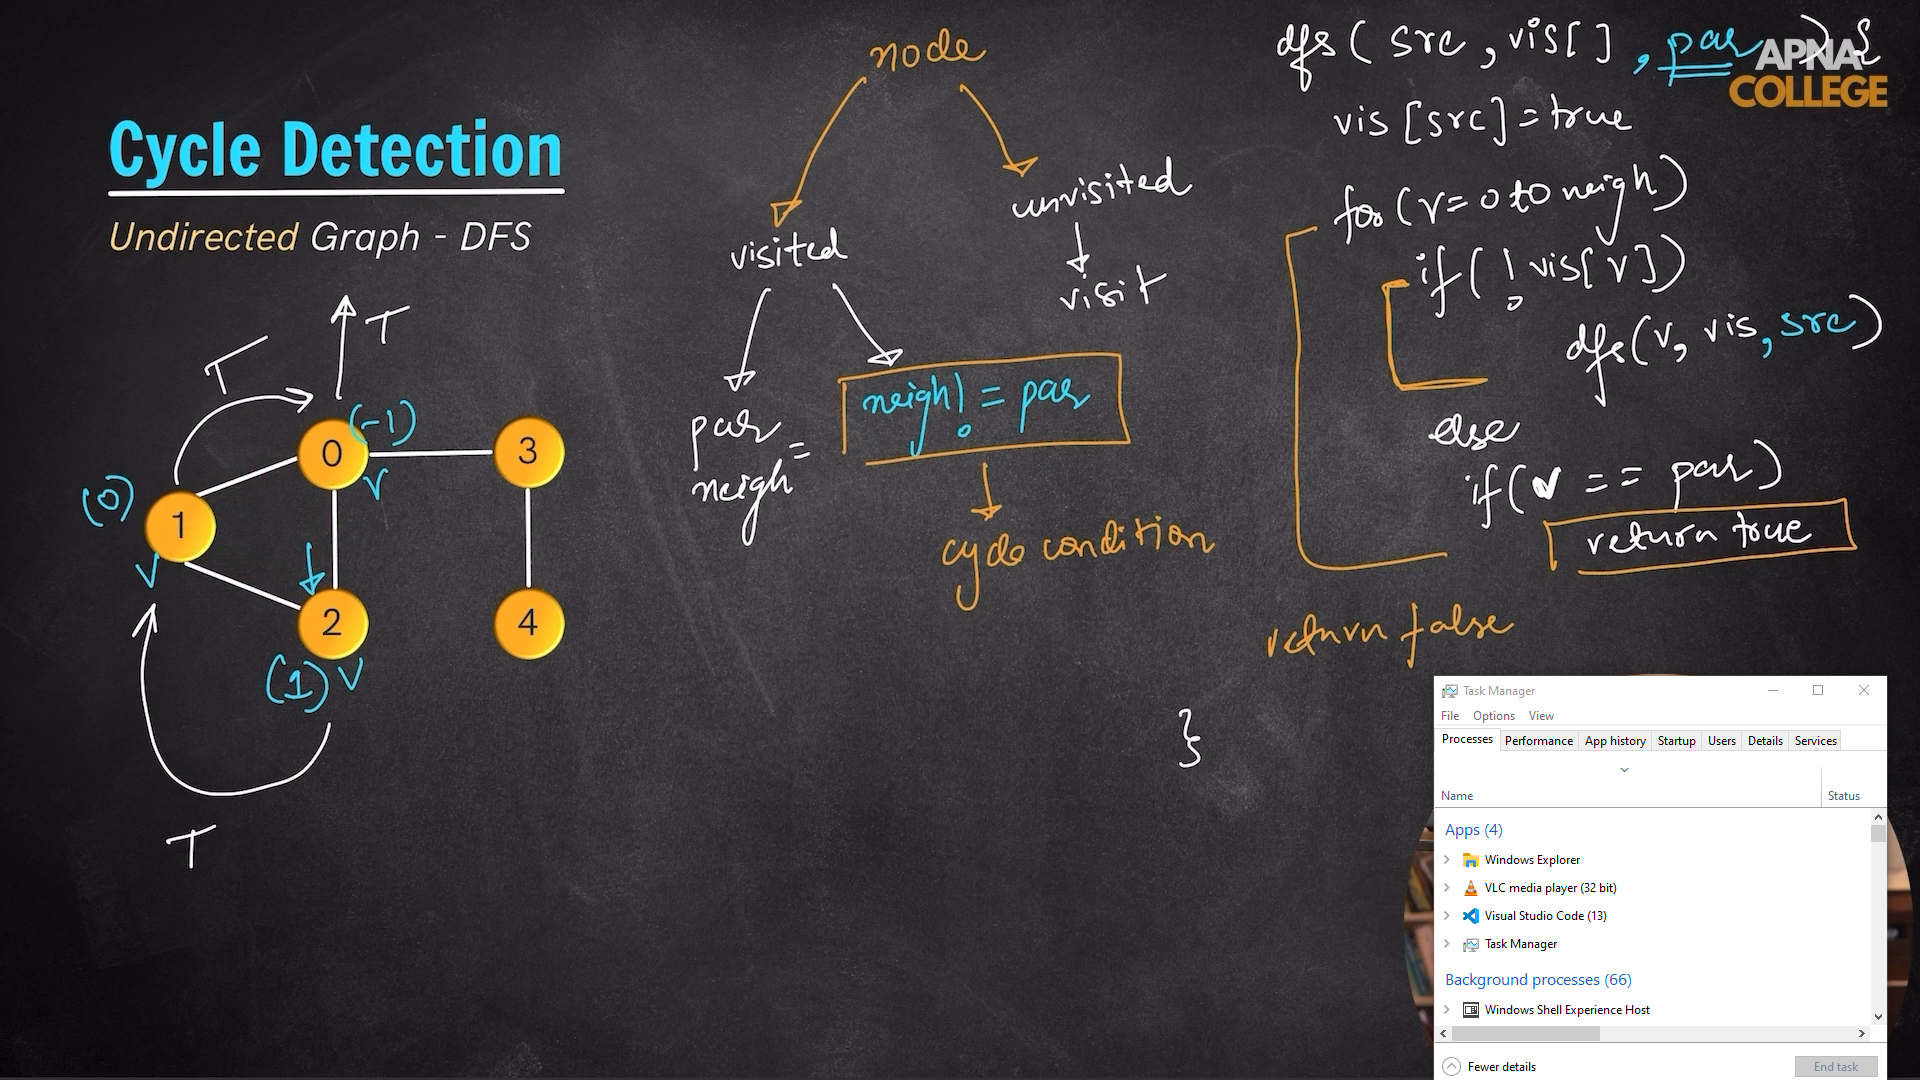 Cycle Detection
Undirected Graph - DFS
T
T
(-1)
0
3
(0)
v
1
v
2
4
(1) v
T
node
visited
unvisited
visit
par
=
neigh
neigh != par
cycle condition
dfs( src, vis[], par ) {
APNA
COLLEGE
vis[src]=true
for(v=0 to neigh)
if( ! vis[v])
dfs(v, vis, src)
else
if(v == par)
return true
return false
}
Task Manager
File Options View
Processes Performance App history Startup Users Details Services
Name Status
Apps (4)
Windows Explorer
VLC media player (32 bit)
Visual Studio Code (13)
Task Manager
Background processes (66)
Windows Shell Experience Host
Fewer details End task